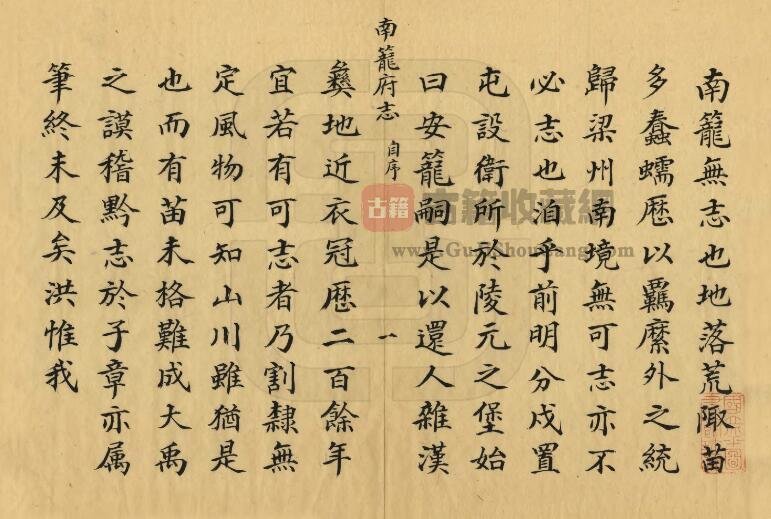 南籠無志也地落荒陬苗
多蠢蠕歷以羈縻外之統
歸梁州南境無可志亦不
必志也洎乎前明分戍置
屯設衛所於陵元之堡始
曰安籠嗣是以還人雜漢
南籠府志 自序 一
彝地近衣冠歷二百餘年
宜若有可志者乃割隸無
定風物可知山川雖猶是
也而有苗未格難成大禹
之謨稽黔志於子章亦属
筆終未及矣洪惟我
古籍
古籍收藏網